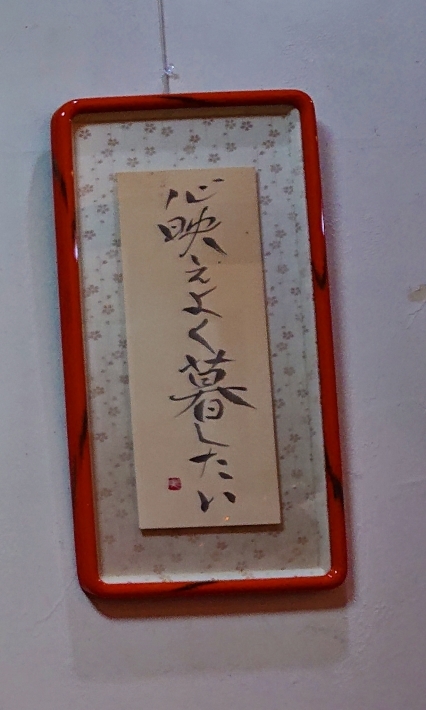 心映えよく暮したい